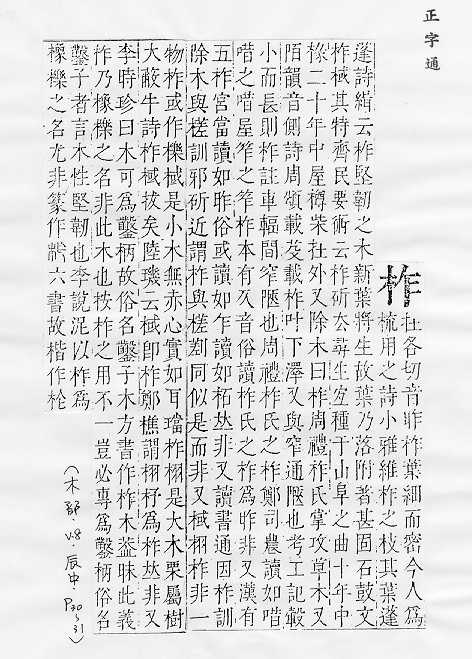 正字通
柞
在各切音昨柞葉細而密今人爲
梳用之詩小雅維柞之枝其葉蓬
蓬詩緝云柞堅韌之木新葉將生故葉乃落附著甚固石鼓文
柞棫其特齊民要術云柞斫去尋生宜種于山阜之曲十年中
椽二十年中屋榑柴在外又除木曰柞周禮柞氏掌攻草木又
陌韻音側詩周頌載芟載柞叶下澤又與窄通陿也考工記轂
小而長則柞註車輻間窄陿也周禮柞氏之柞鄭司農讀如唶
唶之唶屋笮之笮柞本有仄音俗讀柞氏之柞爲昨非又漢有
五柞宮當讀如昨俗或讀如乍讀如柘𠀤非又讀書通因柞訓
除木與槎訓邪斫近謂柞與槎剳同似是而非又棫栩柞非一
物柞或作櫟棫是小木無赤心實如耳璫柞栩是大木栗屬樹
大蔽牛詩柞棫拔矣陸璣云棫卽柞鄭樵謂栩杼爲柞𠀤非又
李時珍曰木可爲鑿柄故俗名鑿子木方書作柞木葢昧此義
柞乃橡櫟之名非此木也按柞之用不一豈必專爲鑿柄俗名
鑿子者言木性堅韌也李說泥以柞爲
橡櫟之名尤非篆作六書故楷作
(木部·V.8·辰中·P30~31)